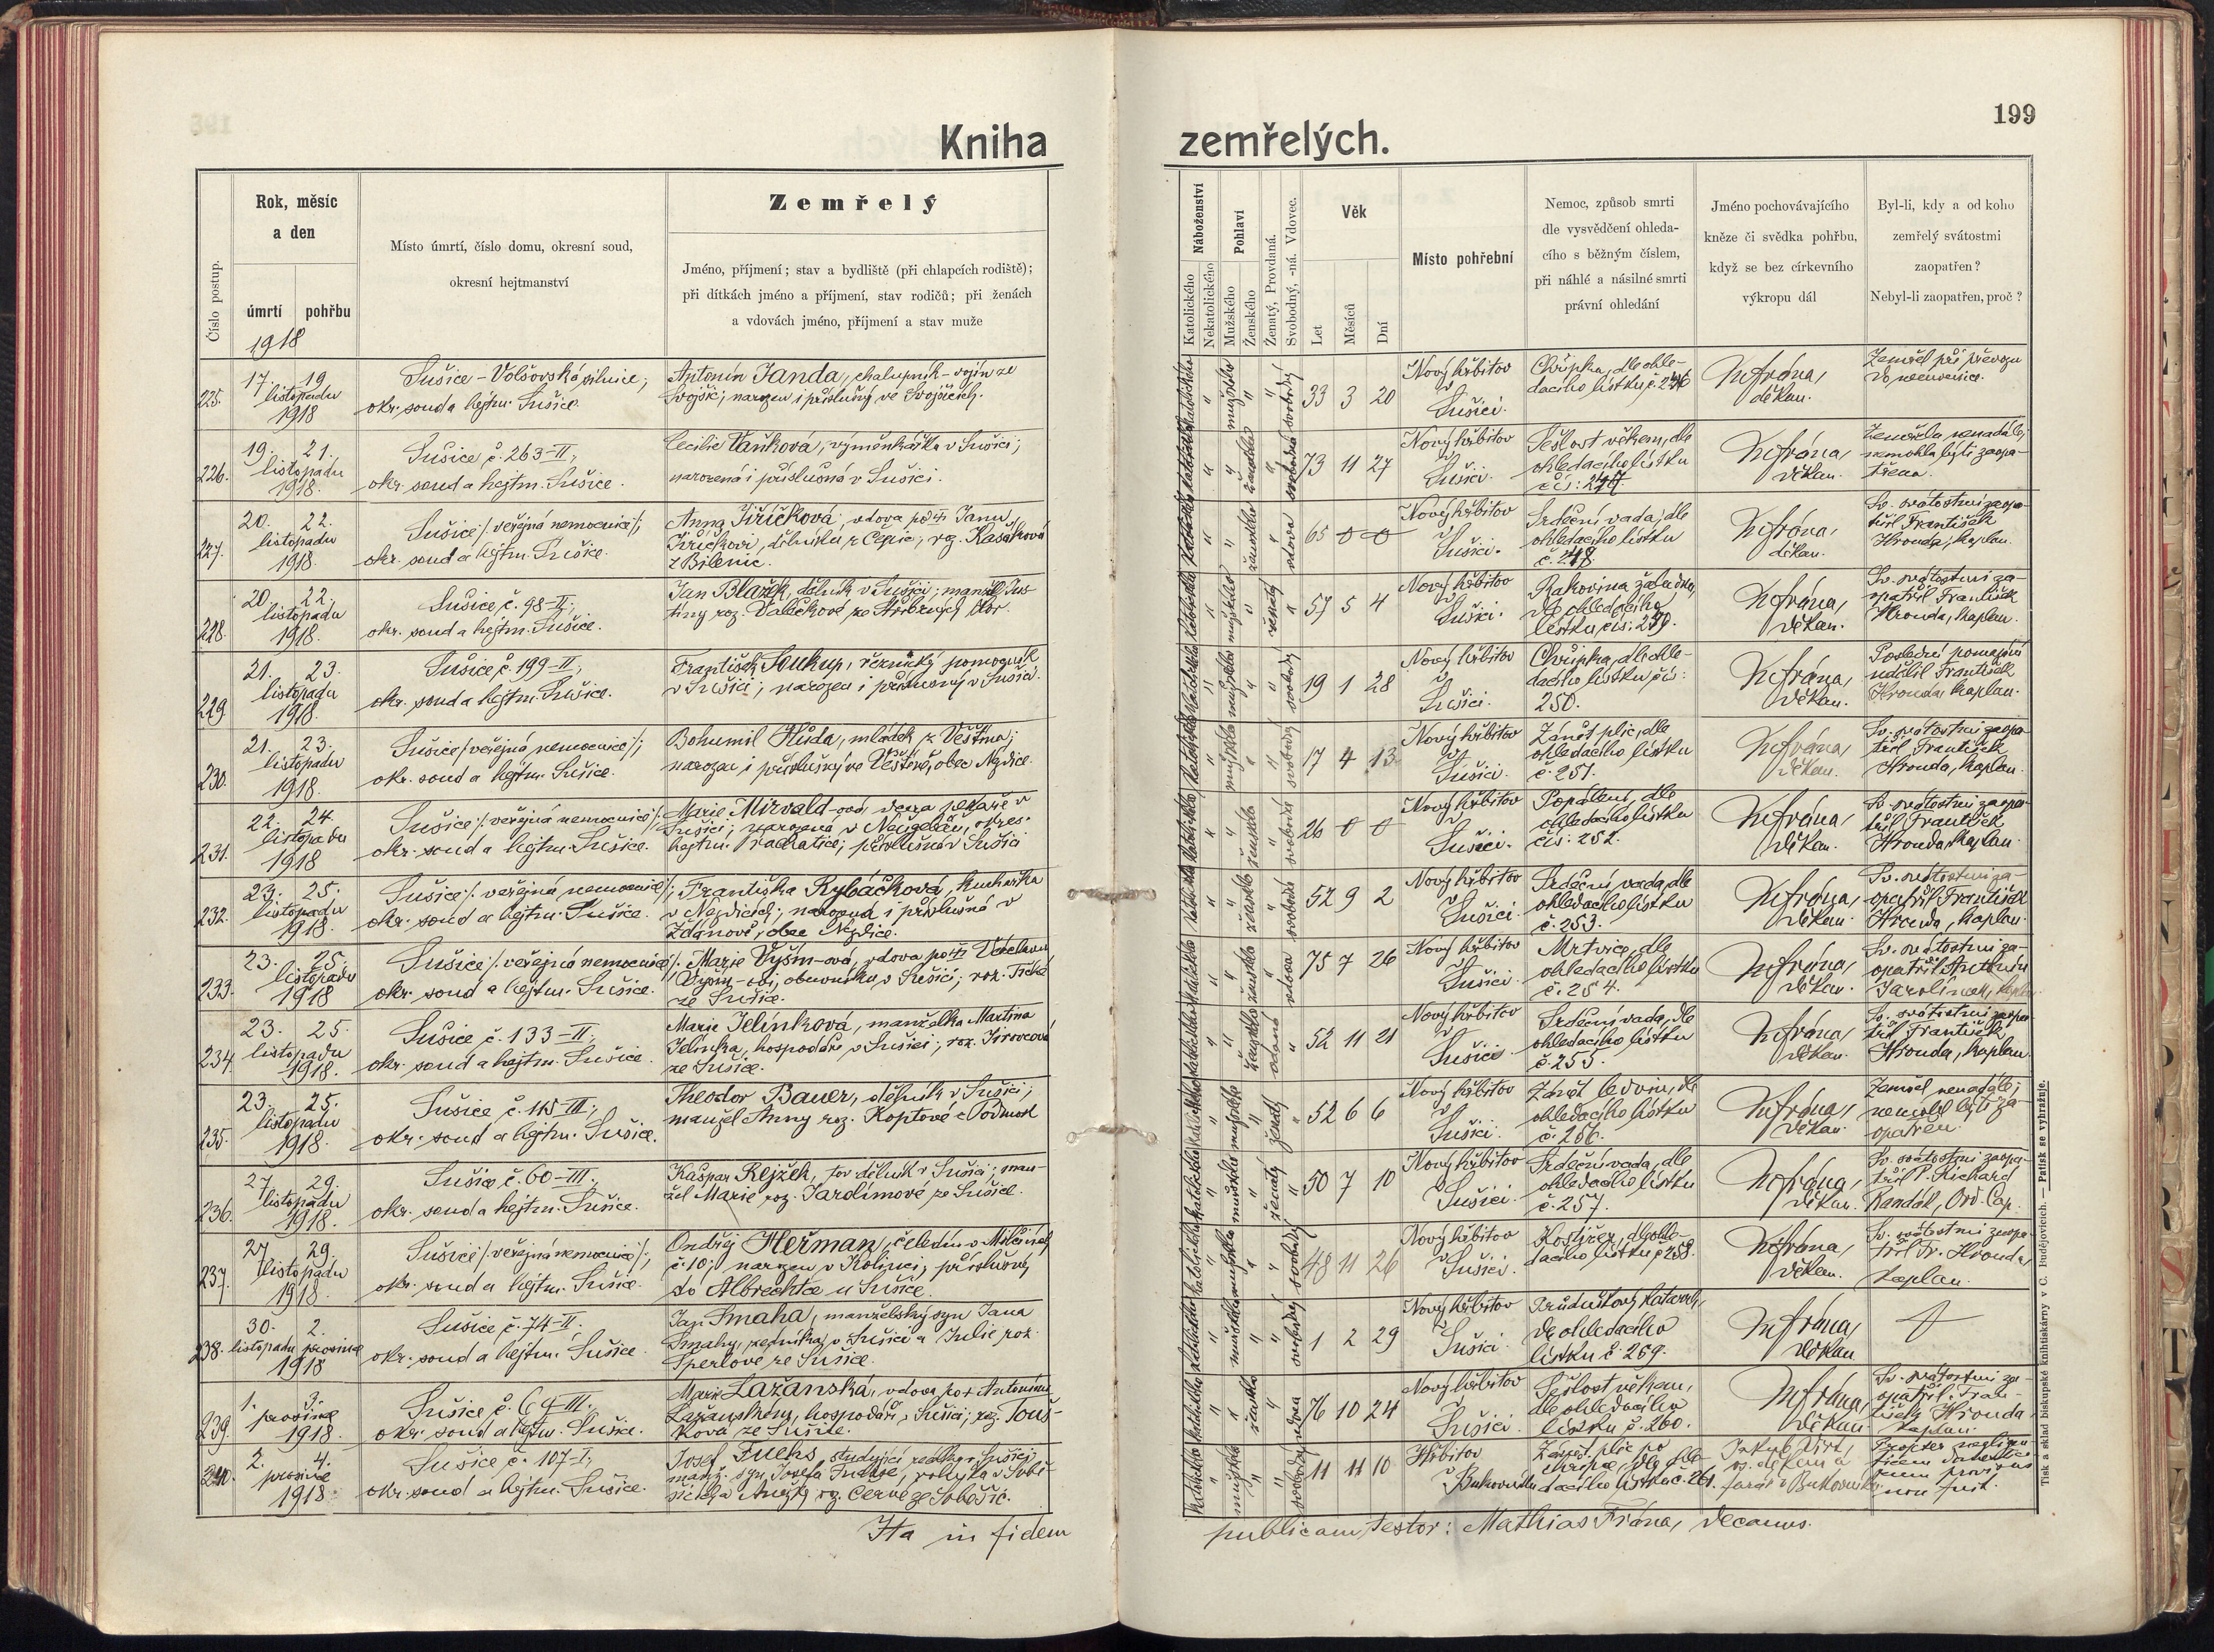 199
Kniha zemřelých.
Číslo postup.
Rok, měsíc
a den
úmrtí
pohřbu
1918
Místo úmrtí, číslo domu, okresní soud,
okresní hejtmanství
Zemřelý
Jméno, příjmení; stav a bydliště (při chlapcích rodiště);
při dítkách jméno a příjmení, stav rodičů; při ženách
a vdovách jméno, příjmení a stav muže
Náboženství
Katolického
Nekatolického
Pohlaví
Mužského
Ženského
Ženatý, Provdaná.
Svobodný, -ná. Vdovec.
Věk
Let
Měsíců
Dní
Místo pohřební
Nemoc, způsob smrti
dle vysvědčení ohleda-
cího s běžným číslem,
při náhlé a násilné smrti
právní ohledání
Jméno pochovávajícího
kněze či svědka pohřbu,
když se bez církevního
výkropu dál
Byl-li, kdy a od koho
zemřelý svátostmi
zaopatřen?
Nebyl-li zaopatřen, proč?
225.
17 19
listopadu
1918
Sušice - Volšovská silnice;
okr. soud a hejtm. Sušice.
Antonín Janda, chalupník - vojín ze
Svojšic; narozen i příslušný ve Svojšicích.
katolického
mužského
svobodný
33 3 20
Nový hřbitov
v
Sušici.
Chřipka, dle ohle-
dacího lístku č. 246
děkan.
Zemřel při převozu
do nemocnice.
226.
19. 21.
listopadu
1918.
Sušice č. 263-II;
okr. soud a hejtm. Sušice.
Cecilie Vaňková, výměnkářka v Sušici;
narozená i příslušná v Sušici.
73 11 27
Nový hřbitov
v
Sušici.
Sešlost věkem, dle
ohledacího lístku
čís: 247.
děkan.
Zemřela nenadále;
nemohla býti zaopa-
třena.
227.
20. 22.
listopadu
1918.
Sušice /: veřejná nemocnice :/;
okr. soud a hejtm. Sušice.
Anna Jiříčková, vdova po Janu
Jiříčkovi, dělníku z Čepic; roz. Kašáková
z Bílenic.
vdova
65 0 0
Nový hřbitov
v
Sušici.
Srdeční vada, dle
ohledacího lístku
č. 248.
děkan.
Sv. svátostmi zaopa-
třil František
Hronda, kaplan.
228.
20. 22.
listopadu
1918.
Sušice č. 98-II;
okr. soud a hejtm. Sušice.
Jan Blažek, dělník v Sušici; manžel Jus-
tiny roz. Valíčkové ze Stříbrných Hor.
ženatý
57 5 4
Nový hřbitov
v
Sušici.
Rakovina žaludku,
dle ohledacího
lístku čís: 249.
děkan.
Sv. svátostmi za-
opatřil František
Hronda, kaplan.
229
21. 23.
listopadu
1918.
Sušice č. 199-II;
okr. soud a hejtm. Sušice.
František Soukup, řeznický pomocník
v Sušici; narozen i příslušný v Sušici.
svobodný
19 1 28
Nový hřbitov
v
Sušici.
Chřipka, dle ohle-
dacího lístku čís:
250.
děkan.
Poslední pomazání
udělil František
Hronda kaplan.
230.
21. 23.
listopadu
1918.
Sušice /: veřejná nemocnice :/;
okr. soud a hejtm. Sušice.
Bohumil Hůda, mládek z Věštína;
narozen i příslušný ve Věštíně, obec Nezdice.
svobodný
17 4 13
Nový hřbitov
v
Sušici.
Zánět plic, dle
ohledacího lístku
č. 251.
děkan.
Sv. svátostmi zaopa-
třil František
Hronda, kaplan.
231.
22. 24.
listopadu
1918
Sušice /: veřejná nemocnice :/;
okr. soud a hejtm. Sušice.
Marie Mirvald-ová, dcera pekaře v
Sušici; narozená v Neugebäu, okres.
hejtm. Prachatice; příslušná v Sušici
svobodná
26 0 0
Nový hřbitov
v
Sušici.
Popálení, dle
ohledacího lístku
čís: 252.
děkan.
Sv. svátostmi zaopa-
třil František
Hronda kaplan.
232.
23. 25.
listopadu
1918.
Sušice /: veřejná nemocnice :/;
okr. soud a hejtm. Sušice.
Františka Rybáčková, kuchařka
v Nezdicích; narozená i příslušná v
Ždánově, obec Nezdice.
svobodná
52 9 2
Nový hřbitov
v
Sušici.
Srdeční vada, dle
ohledacího lístku
č. 253.
děkan.
Sv. svátostmi za-
opatřil František
Hronda, kaplan.
233.
23. 25.
listopadu
1918
Sušice /: veřejná nemocnice :/;
okr. soud a hejtm. Sušice.
Marie Vyšín-ová, vdova po Václavu
obuvníku v Sušici; roz.
ze Sušice.
vdova
75 7 26
Nový hřbitov
v
Sušici.
Mrtvice, dle
ohledacího lístku
č. 254.
děkan.
Sv. svátostmi za-
opatřil Antonín
Jarolímek, kaplan
234.
23. 25.
listopadu
1918.
Sušice č. 133-II;
okr. soud a hejtm. Sušice.
Marie Jelínková, manželka Martina
Jelínka, hospodáře v Sušici; roz. Jirovcová
ze Sušice.
vdaná
52 11 21
Nový hřbitov
v
Sušici
Srdeční vada, dle
ohledacího lístku
č. 255.
děkan.
Sv. svátostmi zaopa-
třil František
Hronda, kaplan.
235.
23. 25.
listopadu
1918.
Sušice č. 115-III;
okr. soud a hejtm. Sušice.
Theodor Bauer, dělník v Sušici;
manžel Anny roz. Koptové z Podmokl
ženatý
52 6 6
Nový hřbitov
v
Sušici.
Zánět ledvin, dle
ohledacího lístku
č. 256.
děkan.
Zemřel nenadále;
nemohl býti za-
opatřen.
236.
27. 29.
listopadu
1918.
Sušice č. 60-III;
okr. soud a hejtm. Sušice.
Kašpar Rejžek, tov. dělník v Sušici; man-
žel Marie roz. Jarolímové ze Sušice.
ženatý
50 7 10
Nový hřbitov
v
Sušici.
Srdeční vada, dle
ohledacího lístku
č. 257.
děkan.
Sv. svátostmi zaopa-
třil P. Richard
Kandát, Ord. Cap.
237.
27. 29.
listopadu
1918.
Sušice /: veřejná nemocnice :/;
okr. soud a hejtm. Sušice.
Ondřej Heřman, čeledín v Milčicích
č. 10; narozen v Kolinci, příslušný
do Albrechtic u Sušice.
svobodný
48 11 26
Nový hřbitov
v Sušici.
Kostižer, dle ohle-
dacího lístku č. 258.
děkan.
Sv. svátostmi zaopa-
třil Fr. Hronda
kaplan.
238.
30. 2.
listopadu prosince
1918
Sušice č. 74-II.
okr. soud a hejtm. Sušice.
Jan Smaha, manželský syn Jana
Smahy, zedníka, v Sušici a Julie roz.
Šperlové ze Sušice.
svobodný
1 2 29
Nový hřbitov
v
Sušici.
Průduškový katarrh,
dle ohledacího
lístku č. 259.
děkan
239.
1. 3.
prosince
1918.
Sušice č. 64 III;
okr. soud a hejtm. Sušice.
Marie Lažanská, vdova po Antonínu
Lažanském, hospodáři v Sušici; roz. Touš-
ková ze Sušice.
vdova
76 10 24
Nový hřbitov
v
Sušici.
Sešlost věkem,
dle ohledacího
lístku č. 260.
děkan
Sv. svátostmi za-
opatřil Fran-
tišek Hronda
kaplan.
240.
2. 4.
prosince
1918.
Sušice č. 107-I;
okr. soud a hejtm. Sušice.
Josef Fuchs, studující reálky v Sušici;
manž. syn Josefa Fuchse, rolníka v Sobě-
šicích a Anežky roz. Černé ze Soběšic.
svobodný
11 11 10
Hřbitov
v Bukovníku
Zánět plic po
chřipce, dle ohle-
dacího lístku č. 261.
Jakub Vírt,
os. děkan a
farář v Bukovníku
Propter negligen-
tiam
non fuit.
Ita in fidem
publicam testor: Mathias Frána, decanus.
Tisk a sklad biskupské knihtiskárny v Č. Budějovicích. — Patisk se vyhražuje.